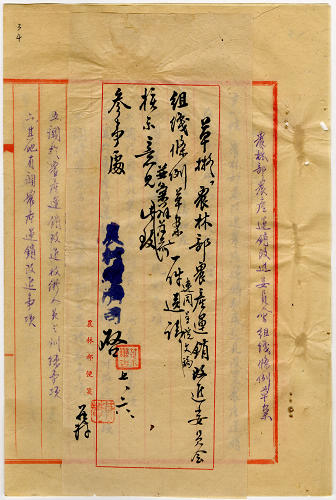 農林部農產運銷改進委員會組織條例草案
草擬「農林部農產運銷改進委員會
組織條例草案」一件送請
連同呈院文稿
核示意見此致
參事處
啓
七、六、
農林部便箋
五、關於農產運銷改進技術人員之訓練事項
六、其他有關農產運銷改進事項
34